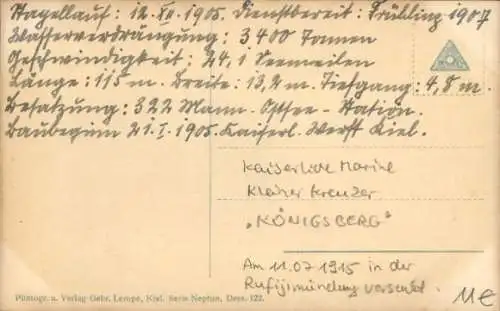 Stapellauf: 12. XII. 1905. Dienstbereit: Frühling 1907
Wasserverdrängung: 3400 Tonnen
Geschwindigkeit: 24,1 Seemeilen
Länge: 115 m. Breite: 13,2 m. Tiefgang: 4,8 m.
Besatzung: 322 Mann. Ostsee-Station.
Baubeginn 21. I. 1905. Kaiserl. Werft Kiel.
Kaiserliche Marine
Kleiner Kreuzer
„KÖNIGSBERG"
Am 11.07 1915 in der
Rufijimündung versenkt.
Photogr. u. Verlag Gebr. Lempe, Kiel. Serie Neptun, Dess. 122.
11€